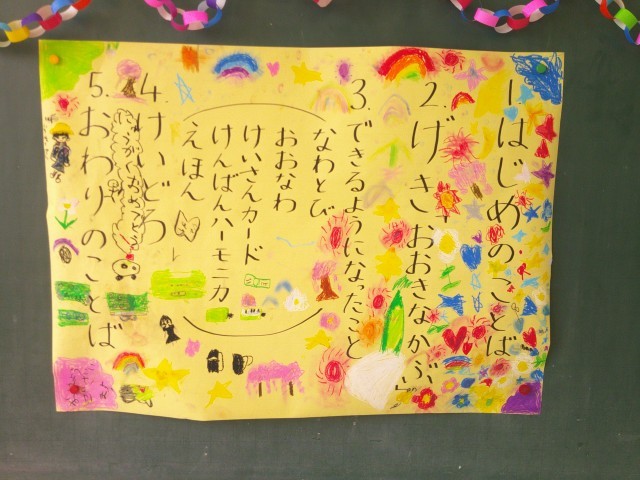 1 はじめのことば
2.げき「おおきなかぶ」
3.できるようになったこと
なわとび
おおなわ
けいさんカード
けんばんハーモニカ
えほん
4.
5.おわりのことば